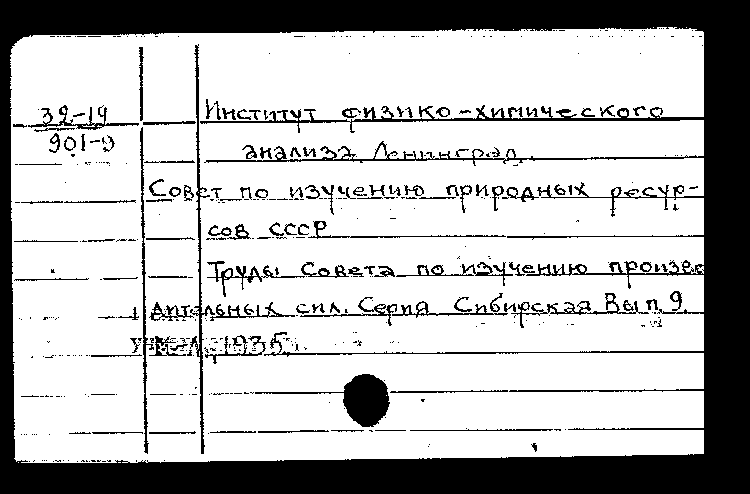 32-19
901-9
Институт физико-химического
анализа. Ленинград.
Совет по изучению природных ресур-
сов СССР
Труды Совета по изучению произво
дительных сил. Серия Сибирская. Вып. 9.
1935.